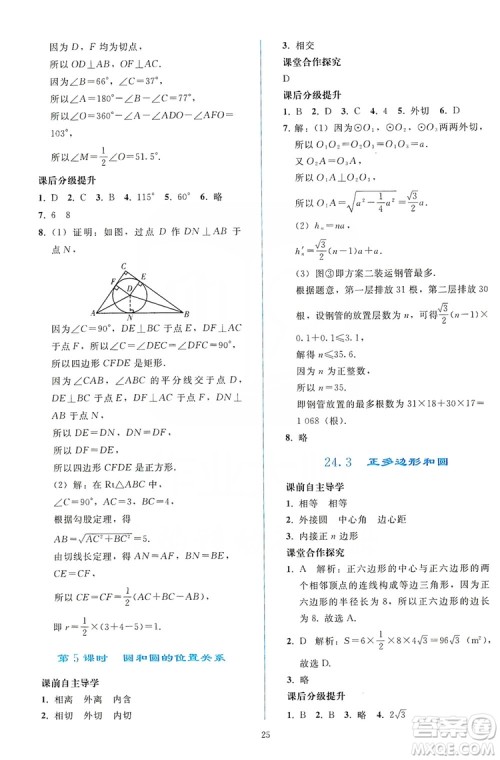 因为 D，F 均为切点，
所以 OD⊥AB，OF⊥AC.
因为∠B=60°，∠C=70°，
所以∠A=180°－∠B－∠C=50°.
所以∠O=360°－∠A－∠ADO－∠AFO=
103°.
所以∠M=1/2∠O=51.5°.
课后分级提升
1. D 2. C 3. B 4. 115° 5. 60° 6. 略
7. 6 8
8. (1) 证明：如图，过点 D 作 DN⊥AB 于
点 N，
C
F
E
D
A
N
B
因为∠C=90°，DE⊥BC 于点 E，DF⊥AC
于点 F，
所以四边形 CFDE 是矩形.
因为∠CAB，∠ABC 的平分线交于点 D，
DE⊥BC 于点 E，DF⊥AC 于点 F，
所以 DF=DN，DE=DN.
所以 DF=DE.
所以四边形 CFDE 是正方形.
(2) 解：在 Rt△ABC 中，
因为∠C=90°，AC=6，BC=8，
根据勾股定理，
AB=√(AC²+BC²)=10，
由切线长定理，得 AF=AN，BE=BN，
CF=CE，
所以 CE=CF=1/2(AC+BC－AB)，
即 r=1/2(6+8－10)=2.
第 5 课时 圆和圆的位置关系
课前自主导学
1. 相离 外离 内含
2. 相切 外切 内切
3. 相交
课堂合作探究
D
课后分级提升
1. B 2. D 3. B 4. D 5. 外切 6. C
7. 解：(1) 因为⊙O₁，⊙O₂，⊙O₃ 两两外切，
所以 O₁O₂=O₂O₃=O₁O₃=a.
又因为 O₂A=O₃A，
所以 O₁A⊥O₂O₃.
所以 O₁A=√(a²－1/4a²)=√3/2a.
(2) hₙ=na，
hₙ′=√3/2(n－1)a+a.
(3) 图③即方案二装运钢管最多.
根据题意，第一层排放 31 根，第二层排放 30
根，设钢管的放置层数为 n，可得√3/2(n－1)×
0.1+0.1≤3.1.
解得 n≤35.6.
因为 n 为正整数，
所以 n=35.
即钢管放置的最多根数为 31×18+30×17=
1 068（根）.
8. 略
24.3 正多边形和圆
课前自主导学
1. 相等 相等
2. 外接圆 中心角 边心距
3. 圆内接正 n 边形
课堂合作探究
1. A 解析：正六边形的中心与正六边形的两
个相邻顶点的连线构成等边三角形，所以
正六边形的半径长为 8. 故选 A.
2. D 解析：S=6×√3/4×8²=96√3(m²).
故选 D.
课后分级提升
1. B 2. C 3. A 4. 2√3
25